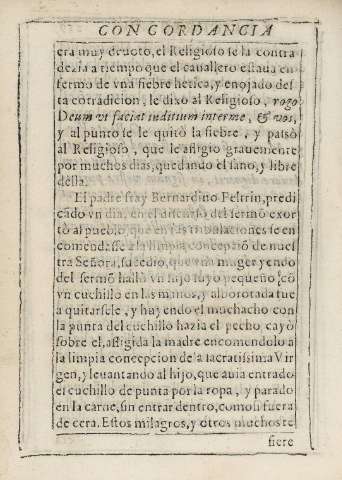 CONCORDANCIA
era muy deuoto, el Religioso se la contra
dezia a tiempo que el cauallero estaua en
fermo de vna fiebre hetica, y enojado des
ta contradicion, le dixo al Religioso, rogo
Deum vt faciat iuditium inter me, & vos,
y al punto se le quitò la fiebre, y passò
al Religioso, que le afligio grauemente
por muchos dias, quedando el sano, y libre
della.
El padre fray Bernardino Feltrin, predi
cado vn dia, en el discurso del sermõ exor
tò al pueblo, que en sus tribulaciones se en
comendasse a la limpia concepciõ de nues
tra Señora, sucedio, que vna muger yendo
del sermõ hallò vn hijo suyo pequeño, cõ
vn cuchillo en las manos, y alborotada fue
a quitarsele, y huyendo el muchacho con
la punta del cuchillo hazia el pecho, cayò
sobre el, afligida la madre encomendolo a
la limpia concepcion de la sacratissima Vir
gen, y leuantando al hijo, que auia entrado
el cuchillo de punta por la ropa, y parado
en la carne, sin entrar dentro, como si fuera
de cera. Estos milagros, y otros muchos re
fiere